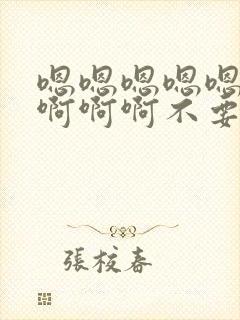 嗯嗯嗯嗯嗯
啊啊啊不要
張校春